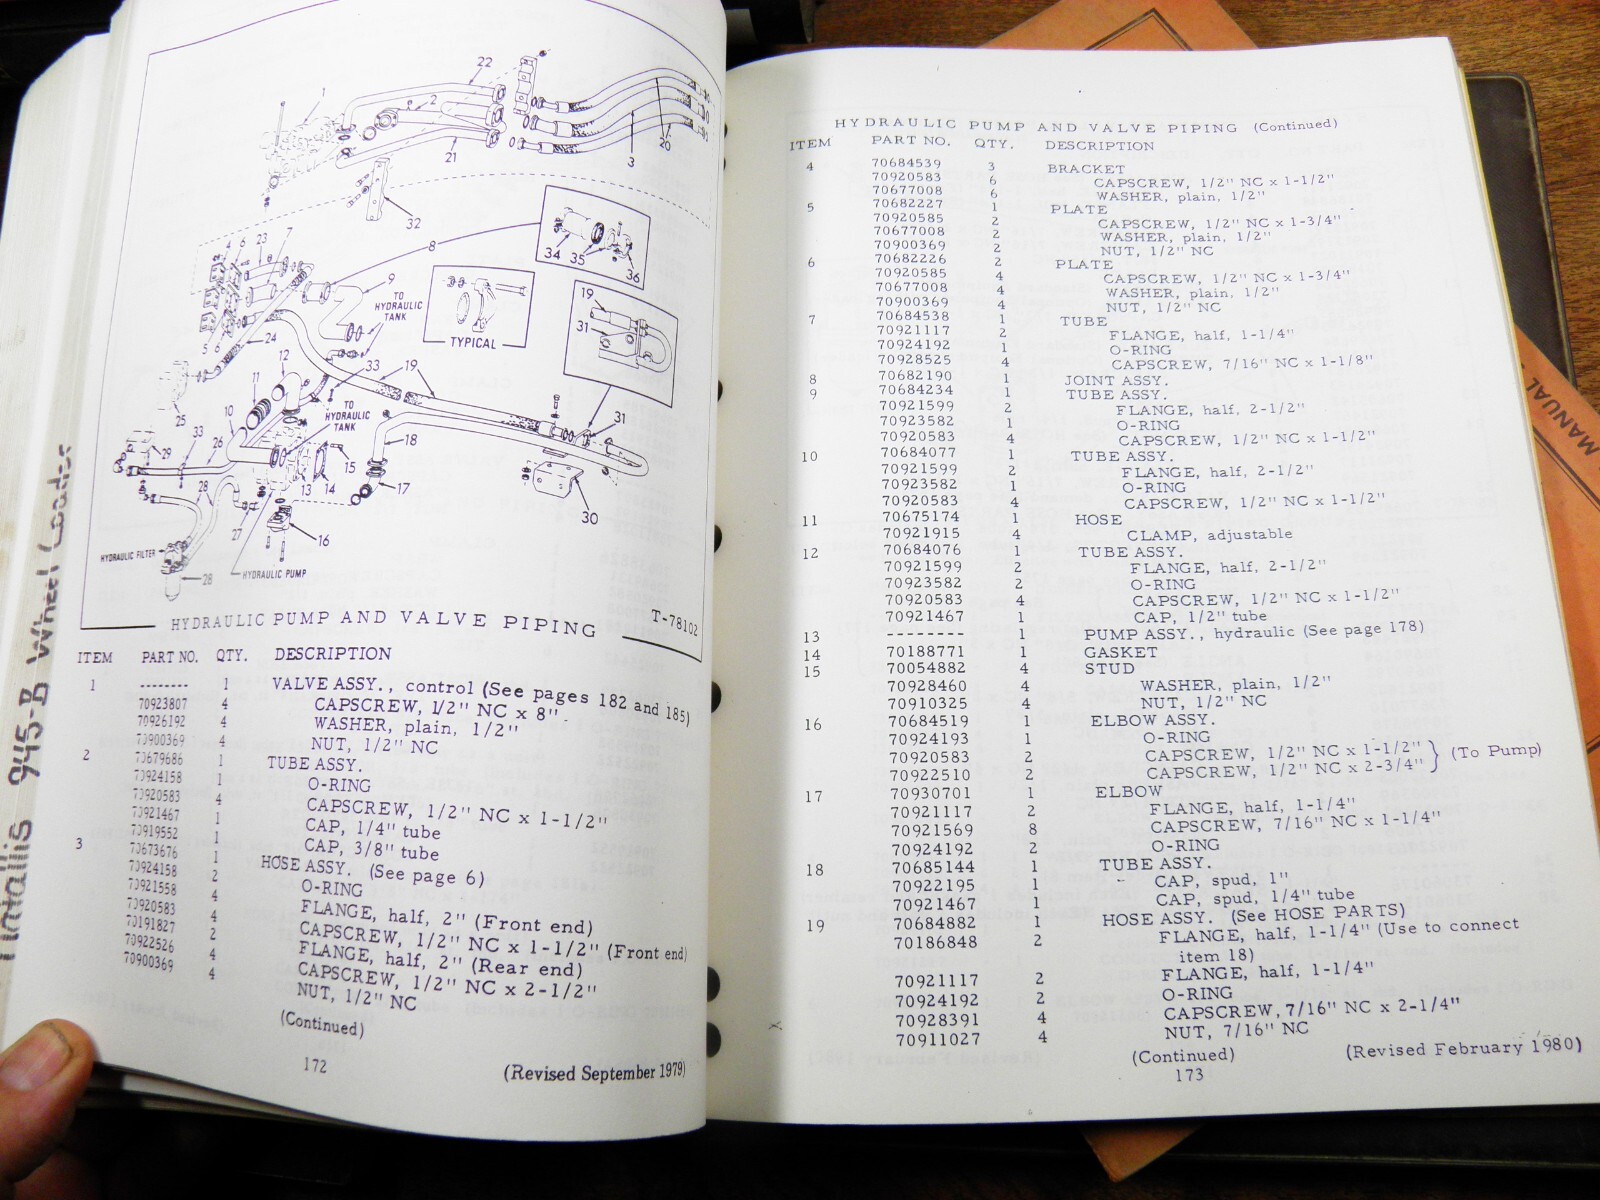 Fiatallis 945-B Wheel Loader
22
1
2
21
3
20
32
34
35
36
4
6
23
7
8
9
TO
HYDRAULIC
TANK
TYPICAL
19
31
5
6
24
12
33
19
11
25
10
TO
HYDRAULIC
TANK
18
31
29
33
26
15
13
14
17
30
28
27
16
HYDRAULIC FILTER
28
HYDRAULIC PUMP
HYDRAULIC PUMP AND VALVE PIPING
T-78102
ITEM PART NO. QTY. DESCRIPTION
1 -------- 1 VALVE ASSY., control (See pages 182 and 185)
70923807 4 CAPSCREW, 1/2" NC x 8"
70926192 4 WASHER, plain, 1/2"
70900369 4 NUT, 1/2" NC
2 70679686 1 TUBE ASSY.
70924158 1 O-RING
70920583 4 CAPSCREW, 1/2" NC x 1-1/2"
70921467 1 CAP, 1/4" tube
70919552 1 CAP, 3/8" tube
3 70673676 1 HOSE ASSY. (See page 6)
70924158 2 O-RING
70921558 4 FLANGE, half, 2" (Front end)
70920583 4 CAPSCREW, 1/2" NC x 1-1/2" (Front end)
70191827 2 FLANGE, half, 2" (Rear end)
70922526 4 CAPSCREW, 1/2" NC x 2-1/2"
70900369 4 NUT, 1/2" NC
(Continued)
172
(Revised September 1979)
HYDRAULIC PUMP AND VALVE PIPING (Continued)
ITEM PART NO. QTY. DESCRIPTION
4 70684539 3 BRACKET
70920583 6 CAPSCREW, 1/2" NC x 1-1/2"
70677008 6 WASHER, plain, 1/2"
5 70682227 1 PLATE
70920585 2 CAPSCREW, 1/2" NC x 1-3/4"
70677008 2 WASHER, plain, 1/2"
70900369 2 NUT, 1/2" NC
6 70682226 2 PLATE
70920585 4 CAPSCREW, 1/2" NC x 1-3/4"
70677008 4 WASHER, plain, 1/2"
70900369 4 NUT, 1/2" NC
7 70684538 1 TUBE
70921117 2 FLANGE, half, 1-1/4"
70924192 1 O-RING
70928525 4 CAPSCREW, 7/16" NC x 1-1/8"
8 70682190 1 JOINT ASSY.
9 70684234 1 TUBE ASSY.
70921599 2 FLANGE, half, 2-1/2"
70923582 1 O-RING
70920583 4 CAPSCREW, 1/2" NC x 1-1/2"
10 70684077 1 TUBE ASSY.
70921599 2 FLANGE, half, 2-1/2"
70923582 1 O-RING
70920583 4 CAPSCREW, 1/2" NC x 1-1/2"
11 70675174 1 HOSE
70921915 4 CLAMP, adjustable
12 70684076 1 TUBE ASSY.
70921599 2 FLANGE, half, 2-1/2"
70923582 2 O-RING
70920583 4 CAPSCREW, 1/2" NC x 1-1/2"
70921467 1 CAP, 1/2" tube
13 -------- 1 PUMP ASSY., hydraulic (See page 178)
14 70188771 1 GASKET
15 70054882 4 STUD
70928460 4 WASHER, plain, 1/2"
70910325 4 NUT, 1/2" NC
16 70684519 1 ELBOW ASSY.
70924193 1 O-RING
70920583 2 CAPSCREW, 1/2" NC x 1-1/2" } (To Pump)
70922510 2 CAPSCREW, 1/2" NC x 2-3/4"
17 70930701 1 ELBOW
70921117 2 FLANGE, half, 1-1/4"
70921569 8 CAPSCREW, 7/16" NC x 1-1/4"
70924192 2 O-RING
18 70685144 1 TUBE ASSY.
70922195 1 CAP, spud, 1"
70921467 1 CAP, spud, 1/4" tube
19 70684882 1 HOSE ASSY. (See HOSE PARTS)
70186848 2 FLANGE, half, 1-1/4" (Use to connect
item 18)
70921117 2 FLANGE, half, 1-1/4"
70924192 2 O-RING
70928391 4 CAPSCREW, 7/16" NC x 2-1/4"
70911027 4 NUT, 7/16" NC
(Continued)
(Revised February 1980)
173
MANUAL